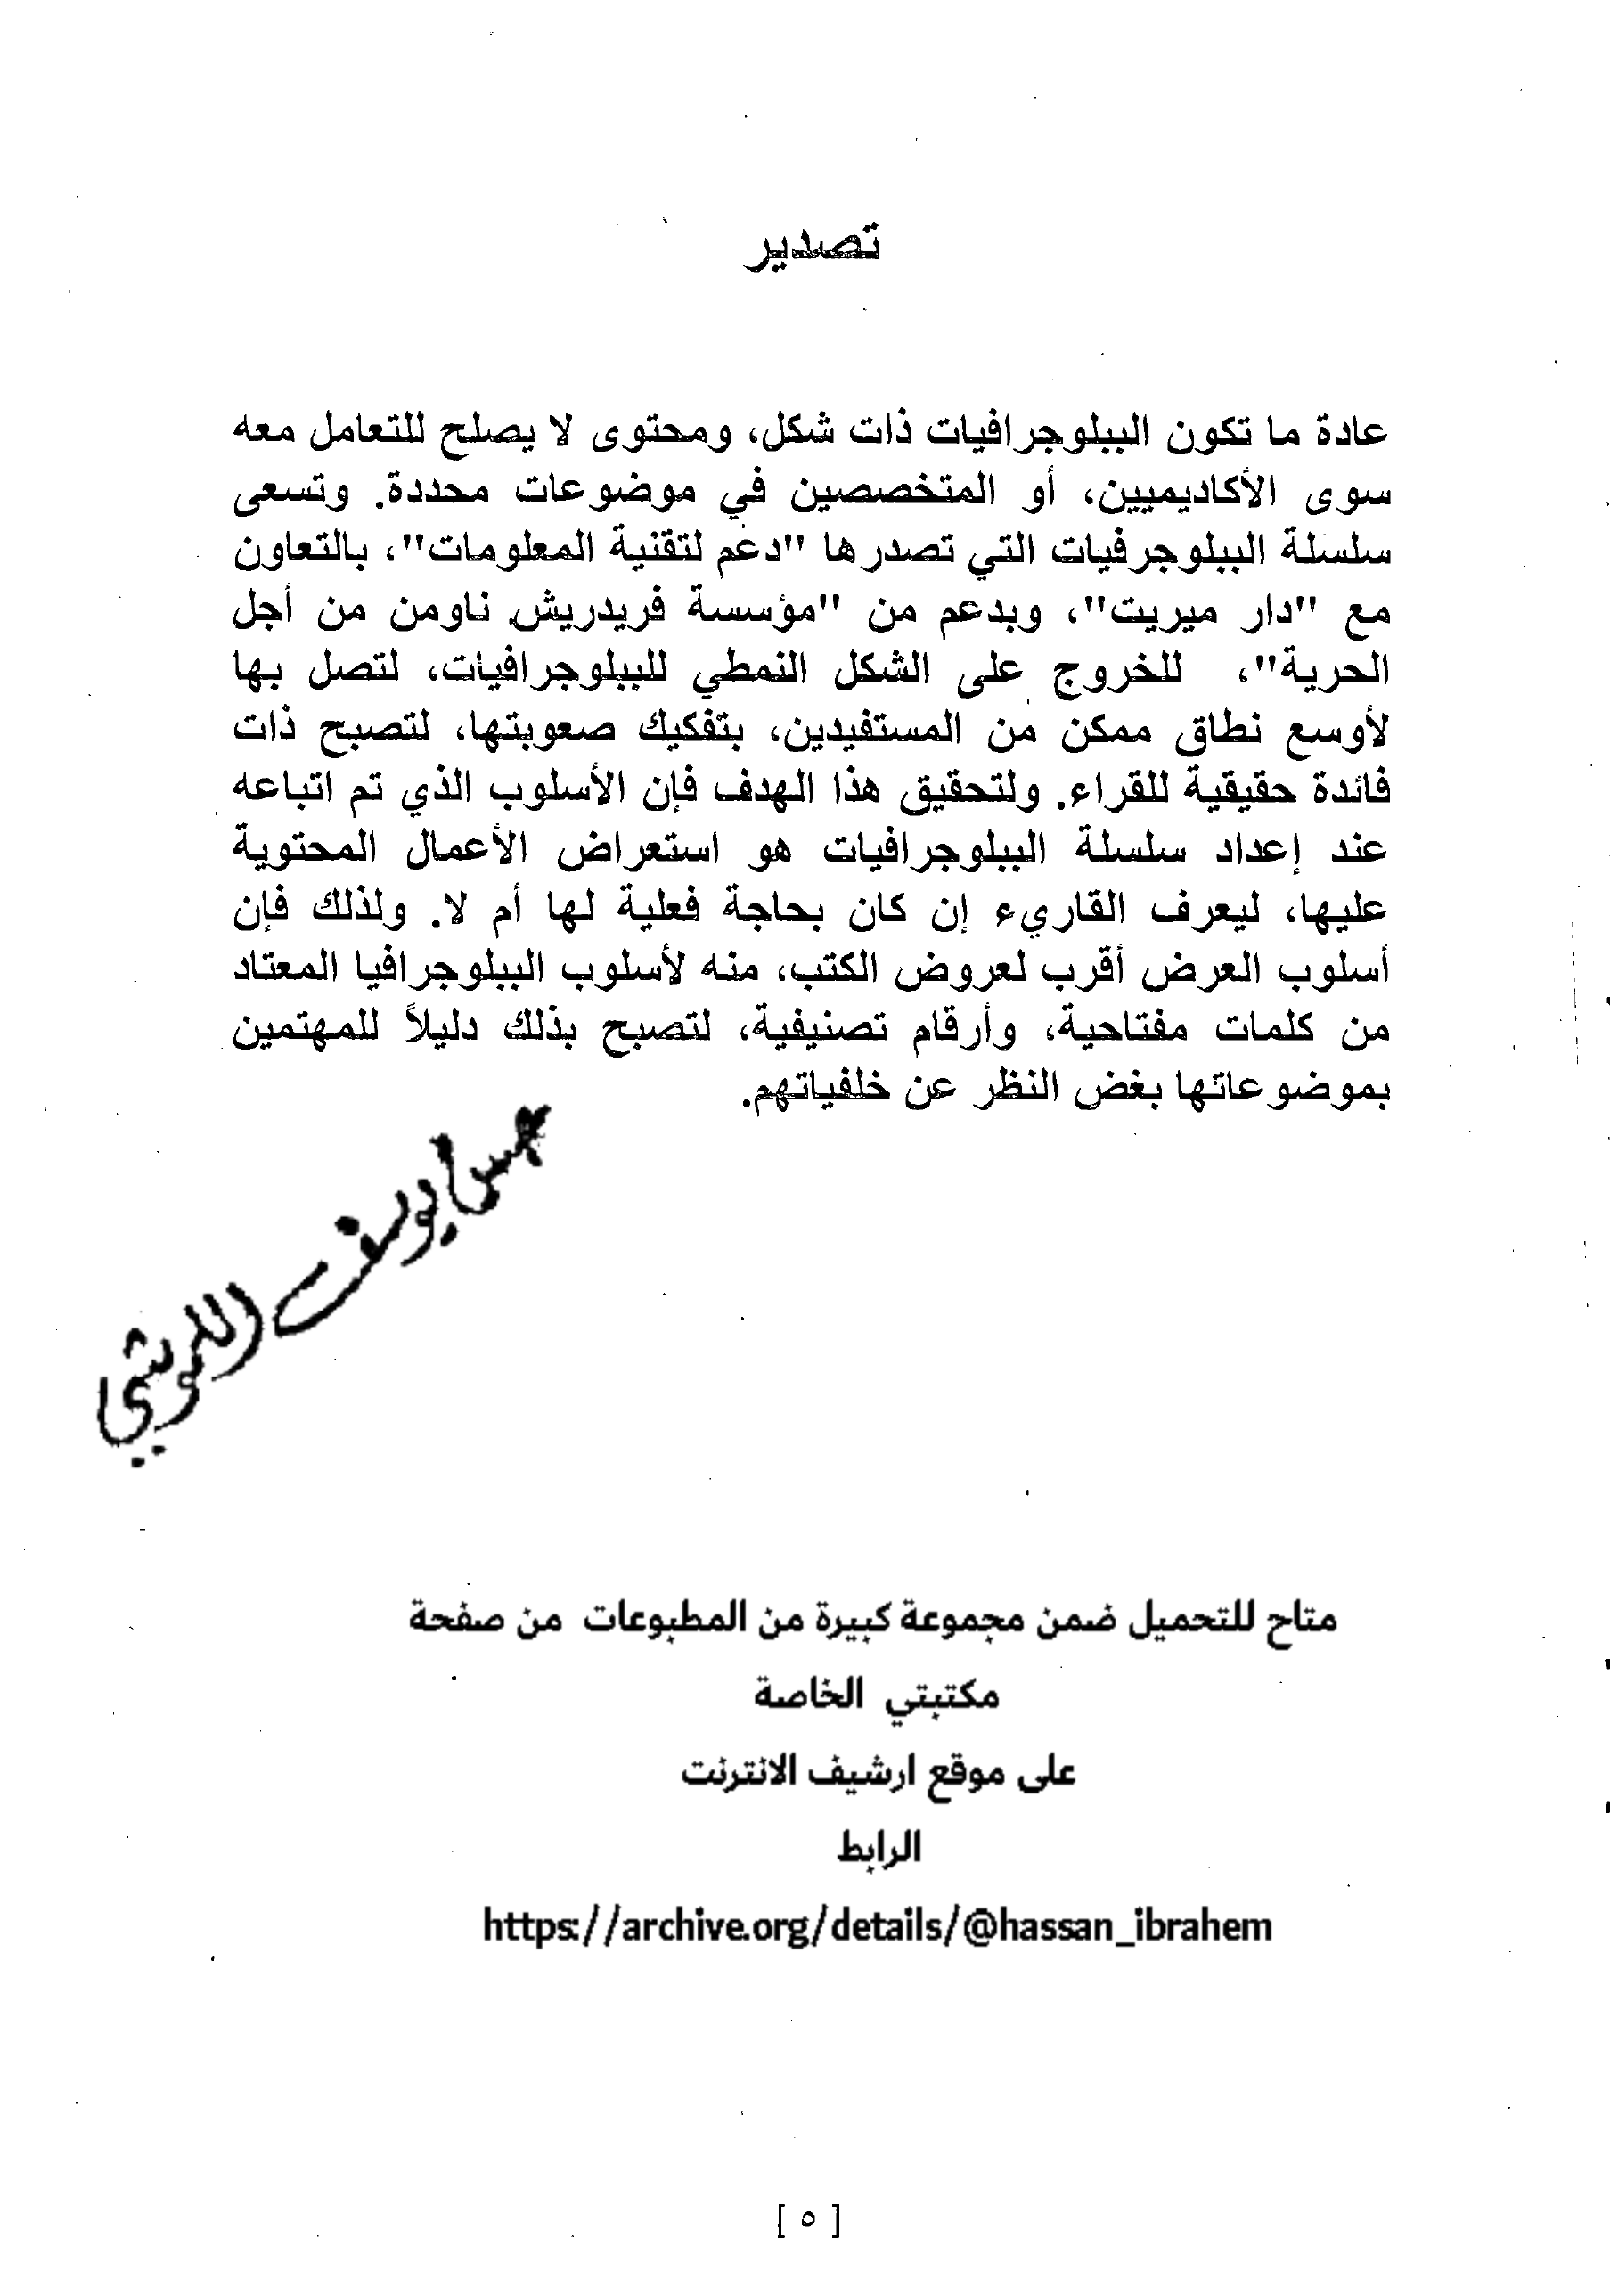 تصدير
عادة ما تكون الببلوجرافيات ذات شكل، ومحتوى لا يصلح للتعامل معه
سوى الأكاديميين، أو المتخصصين في موضوعات محددة. وتسعى
سلسلة الببلوجرفيات التي تصدرها "دعم لتقنية المعلومات"، بالتعاون
مع "دار ميريت"، وبدعم من "مؤسسة فريدريش ناومن من أجل
الحرية"، للخروج على الشكل النمطي للببلوجرافيات، لتصل بها
لأوسع نطاق ممكن من المستفيدين، بتفكيك صعوبتها، لتصبح ذات
فائدة حقيقية للقراء. ولتحقيق هذا الهدف فإن الأسلوب الذي تم اتباعه
عند إعداد سلسلة الببلوجرافيات هو استعراض الأعمال المحتوية
عليها، ليعرف القاريء إن كان بحاجة فعلية لها أم لا. ولذلك فإن
أسلوب العرض أقرب لعروض الكتب، منه لأسلوب الببلوجرافيا المعتاد
من كلمات مفتاحية، وأرقام تصنيفية، لتصبح بذلك دليلاً للمهتمين
بموضوعاتها بغض النظر عن خلفياتهم.
متاح للتحميل ضمن مجموعة كبيرة من المطبوعات من صفحة
مكتبتي الخاصة
على موقع ارشيف الانترنت
الرابط
https://archive.org/details/@hassan_ibrahem
[ ٥ ]